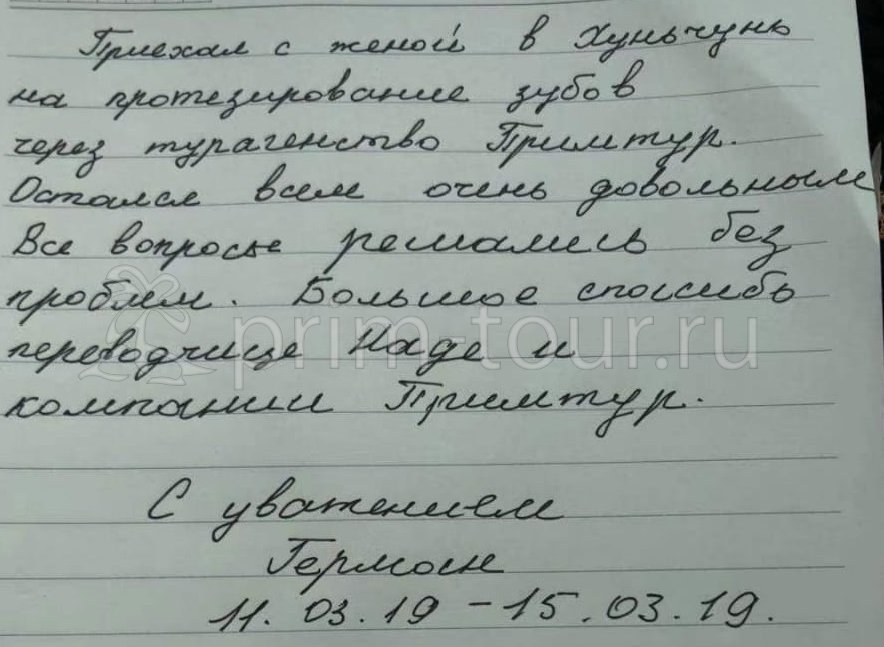 Приехал с женой в Хуньчунь
на протезирование зубов
через турагенство Примтур.
Остался всем очень довольным
Все вопросы решались без
проблем. Большое спасибо
prim-tour.ru
переводчице Наде и
компании Примтур.
С уважением
Герман
11.03.19 - 15.03.19.